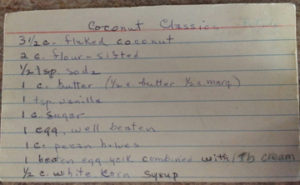 Coconut Classics
3 1/2 c. flaked coconut
2 c. flour - sifted
1/2 tsp. soda
1 c. butter (1/2 c butter 1/2 c marg.)
1 tsp vanilla
1 c. sugar
1 egg, well beaten
1 c. pecan halves
1 beaten egg yolk combined with 1 Tb cream
1/2 c. white corn syrup